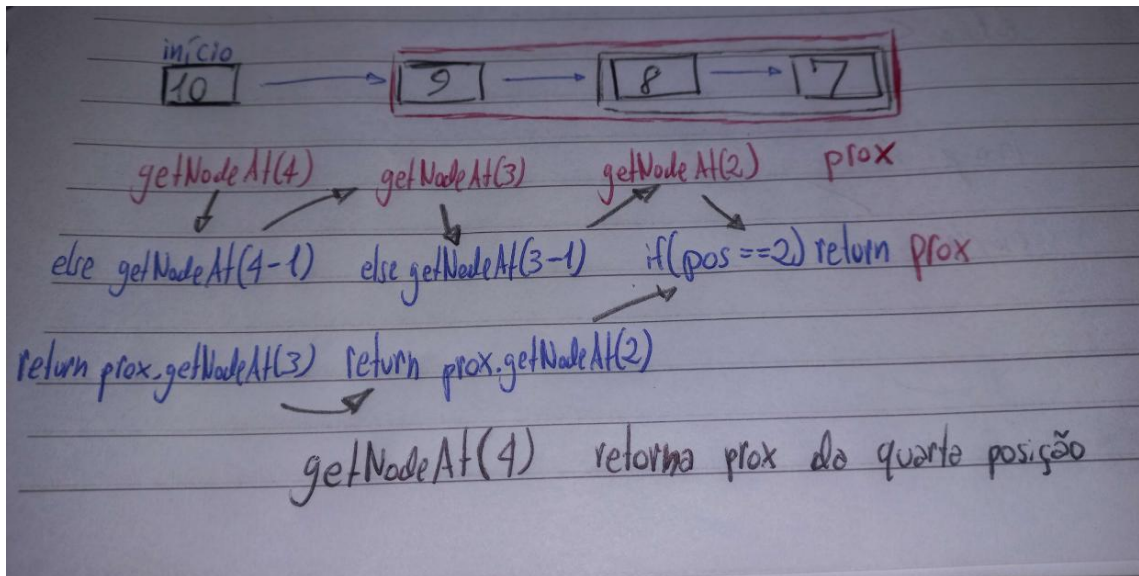 início
10 9 8 7
getNodeAt(4) getNodeAt(3) getNodeAt(2) prox
else getNodeAt(4-1) else getNodeAt(3-1) if(pos==2) return prox
return prox.getNodeAt(3) return prox.getNodeAt(2)
getNodeAt(4) retorna prox da quarta posição